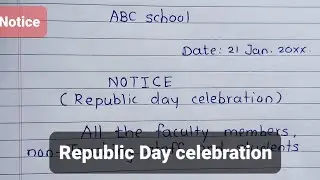 Notice
ABC school
Date: 21 Jan. 20xx.
NOTICE
(Republic day celebration)
All the faculty members,
Republic Day celebration